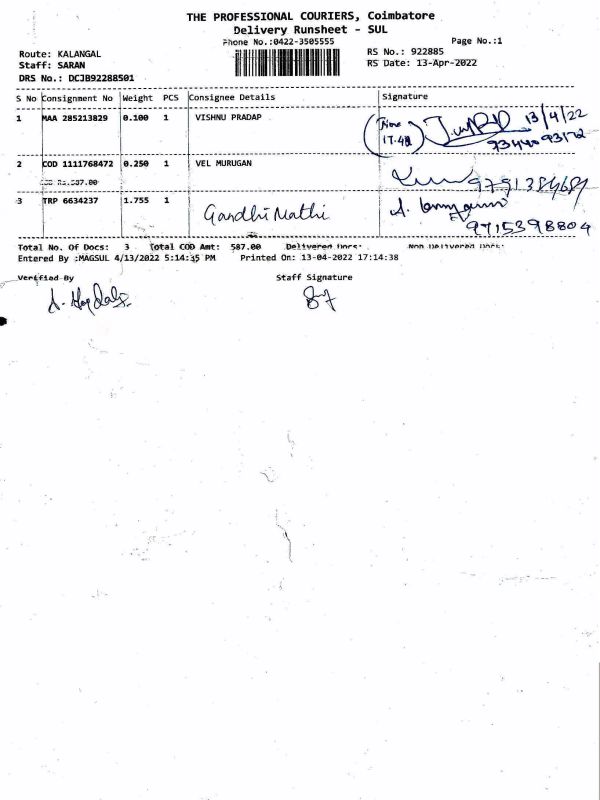 THE PROFESSIONAL COURIERS, Coimbatore
Delivery Runsheet - SUL
Phone No.:0422-3505555
Page No.:1
Route: KALANGAL
RS No.: 922885
Staff: SARAN
RS Date: 13-Apr-2022
DRS No.: DCJB92288501
S No Consignment No Weight PCS Consignee Details Signature
1 MAA 285213829 0.100 1 VISHNU PRADAP
13/4/22
Time
17.42
93440 93172
2 COD 1111768472 0.250 1 VEL MURUGAN
COD Rs.587.00
3 TRP 6634237 1.755 1 Gandhi Mathi
9715398804
Total No. Of Docs: 3 Total COD Amt: 587.00 Delivered Docs: Non Delivered Docs:
Entered By :MAGSUL 4/13/2022 5:14:35 PM Printed On: 13-04-2022 17:14:38
Verified By Staff Signature